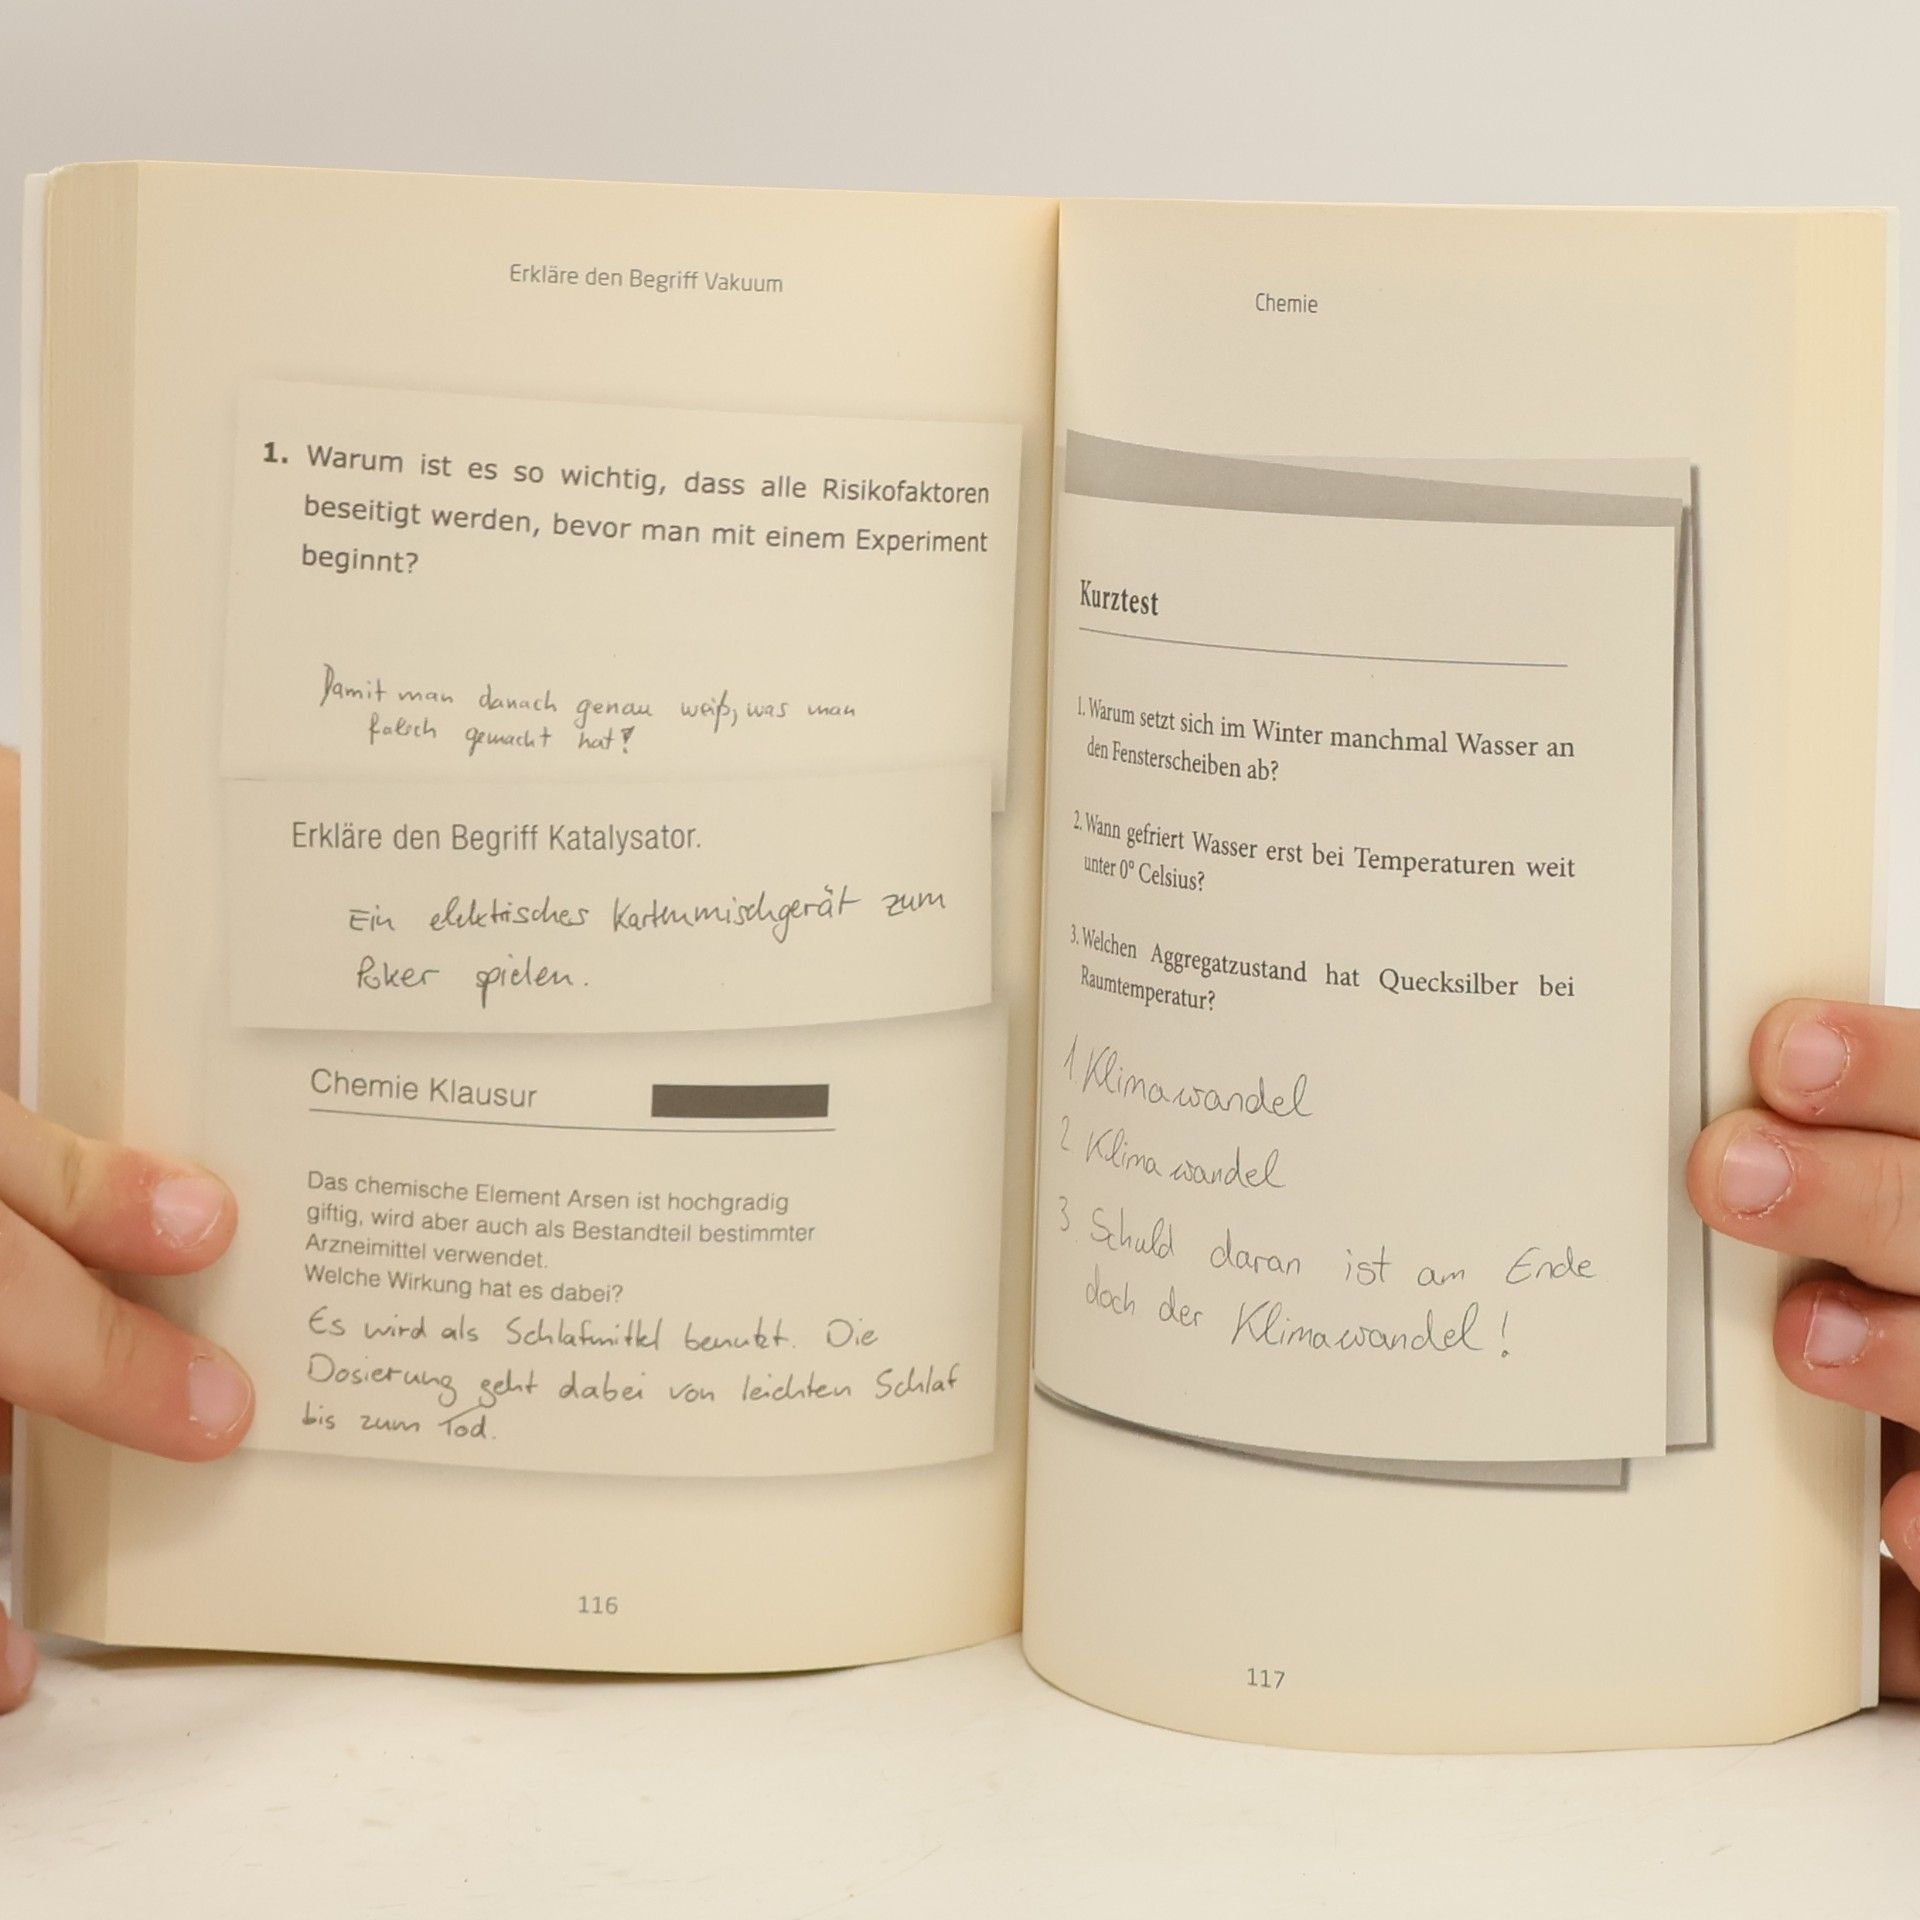 Erkläre den Begriff Vakuum
1. Warum ist es so wichtig, dass alle Risikofaktoren
beseitigt werden, bevor man mit einem Experiment
beginnt?
Damit man danach genau weiß, was man
falsch gemacht hat!
Erkläre den Begriff Katalysator.
Ein elektrisches Kartenmischgerät zum
Poker spielen.
Chemie Klausur
Das chemische Element Arsen ist hochgradig
giftig, wird aber auch als Bestandteil bestimmter
Arzneimittel verwendet.
Welche Wirkung hat es dabei?
Es wird als Schlafmittel benutzt. Die
Dosierung geht dabei von leichten Schlaf
bis zum Tod.
116
Chemie
Kurztest
1. Warum setzt sich im Winter manchmal Wasser an
den Fensterscheiben ab?
2. Wann gefriert Wasser erst bei Temperaturen weit
unter 0° Celsius?
3. Welchen Aggregatzustand hat Quecksilber bei
Raumtemperatur?
1. Klimawandel
2 Klimawandel
3. Schuld daran ist am Ende
doch der Klimawandel!
117